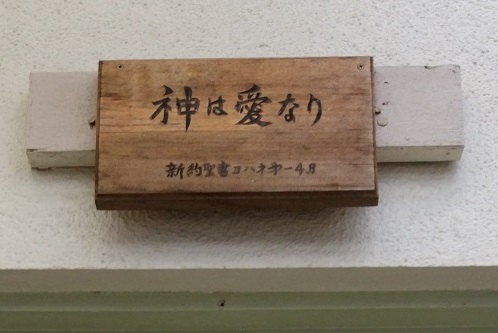 神は愛なり
新約聖書ヨハネ第一4・8